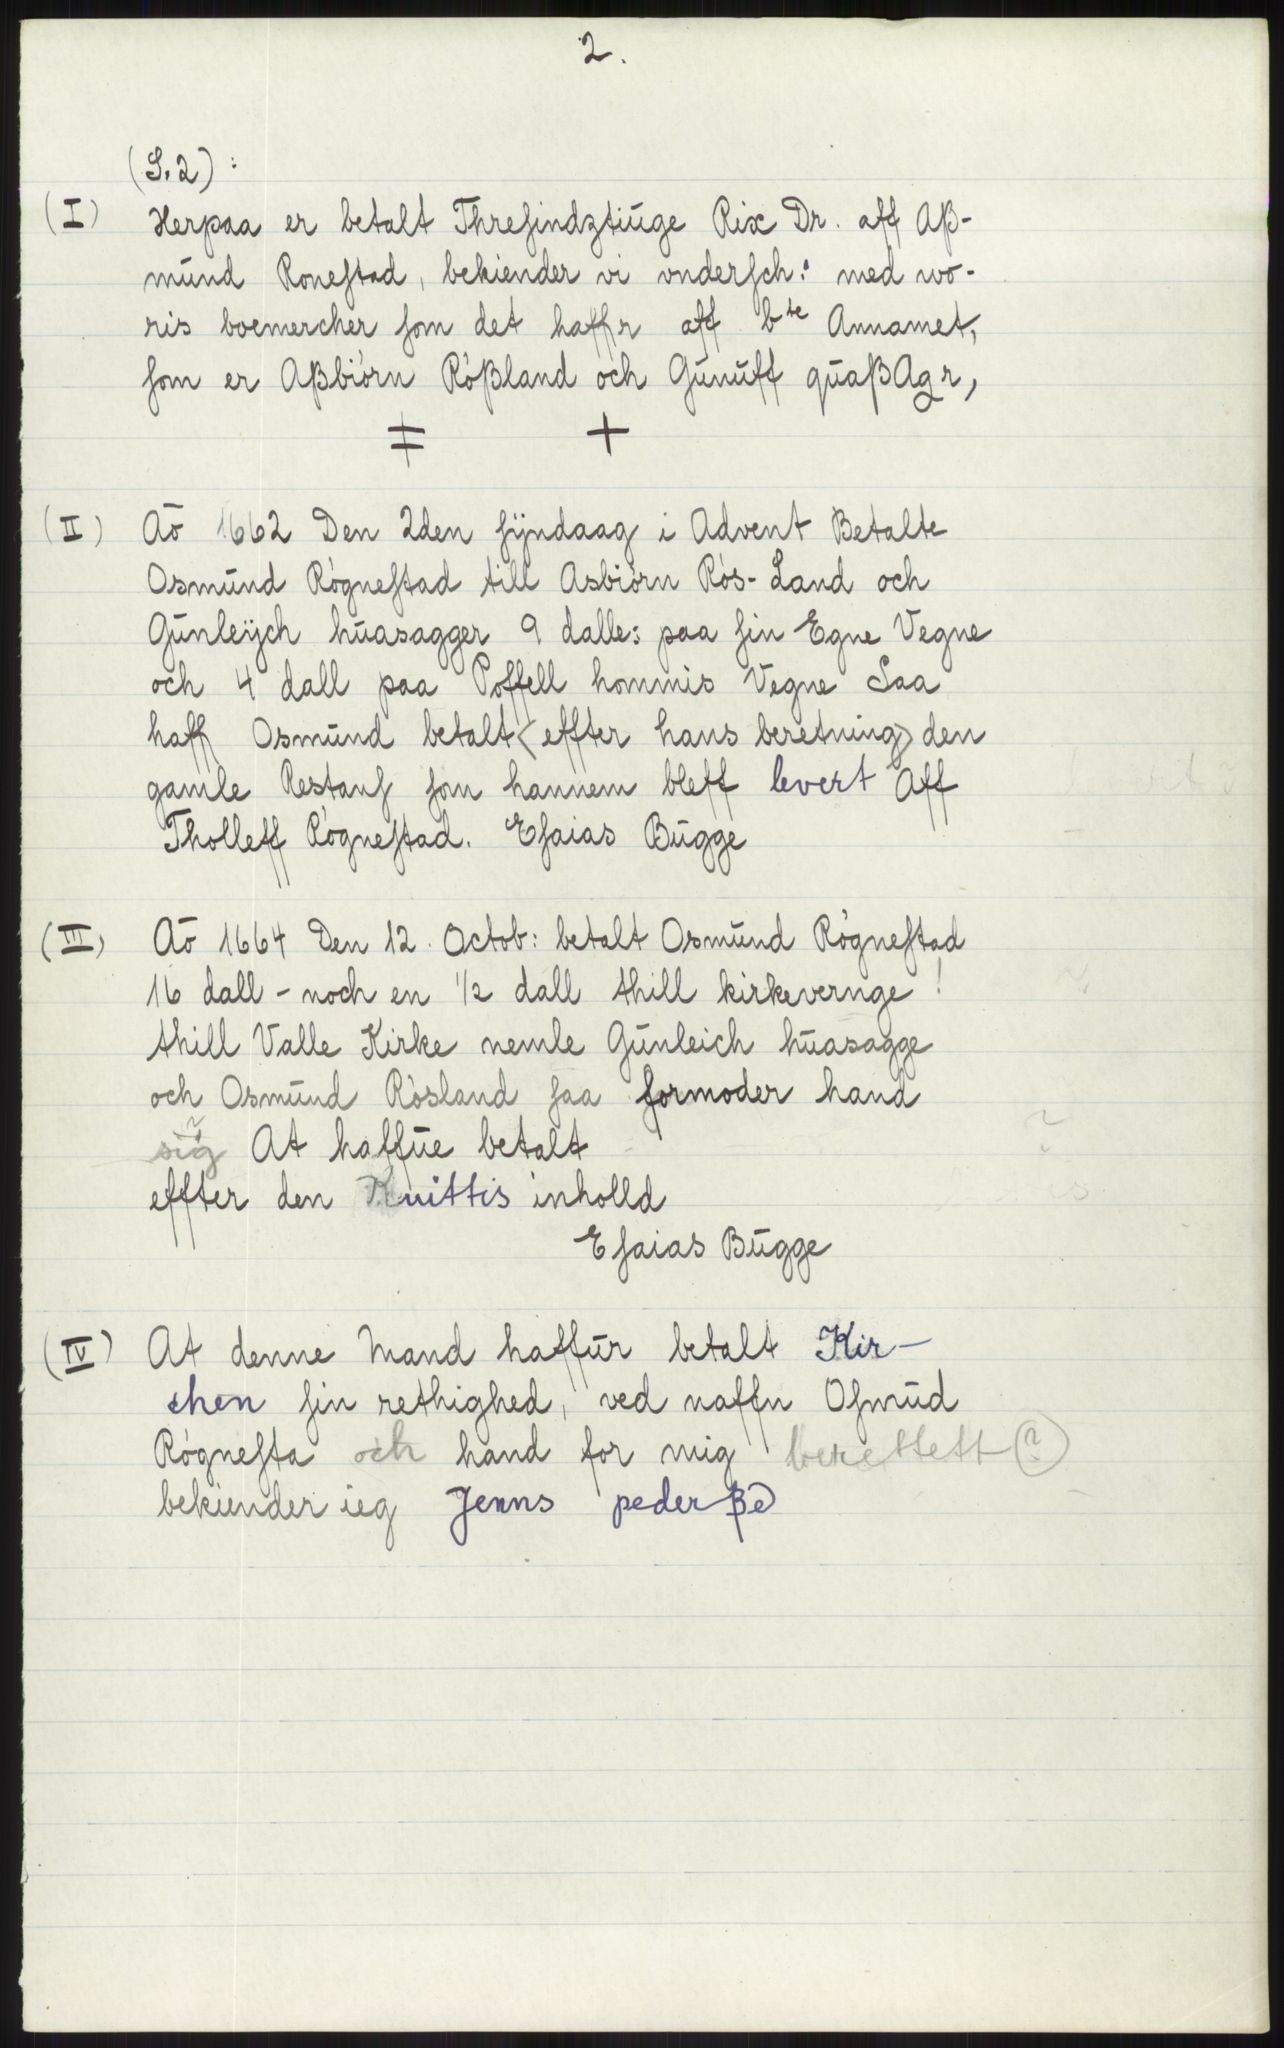 2.
(S.2):
(I) Herpaa er betalt Thresindztiuge Rix Dr. aff Aß-
mund Ronestad, bekiender vi vndersch: med wo-
ris boemercher som det haffr aff bte Annamet,
som er Aßbiórn Róßland och Gunuff quaßAgr,
‡ +
(II) Aō 1662 Den 2den sÿndaag i Advent Betalte
Osmund Rógnestad till Asbiórn Rós-Land och
Gunleÿch huasagger 9 dalle: paa sin Egne Vegne
och 4 dall paa Poffell hommis Vegne Saa
haff Osmund betalt <effter hans beretning> den
gamle Restans som hannem bleff levert Aff
Tholleff Rógnestad. Esaias Bugge
(III) Aō 1664 Den 12. Octob: betalt Osmund Rógnestad
16 dall - noch en 1/2 dall thill kirkevernge !
thill Valle Kirke nemle Gunleich huasagge
och Osmund Rósland saa formoder hand
sig At haffue betalt
effter den Kuittis inholld
Esaias Bugge
(IV) At denne Mand haffur betalt Kir-
chen sin rethighed, ved naffn Osmud
Rógnesta och hand for mig berettett (?)
bekiender ieg Jenns peder ßē